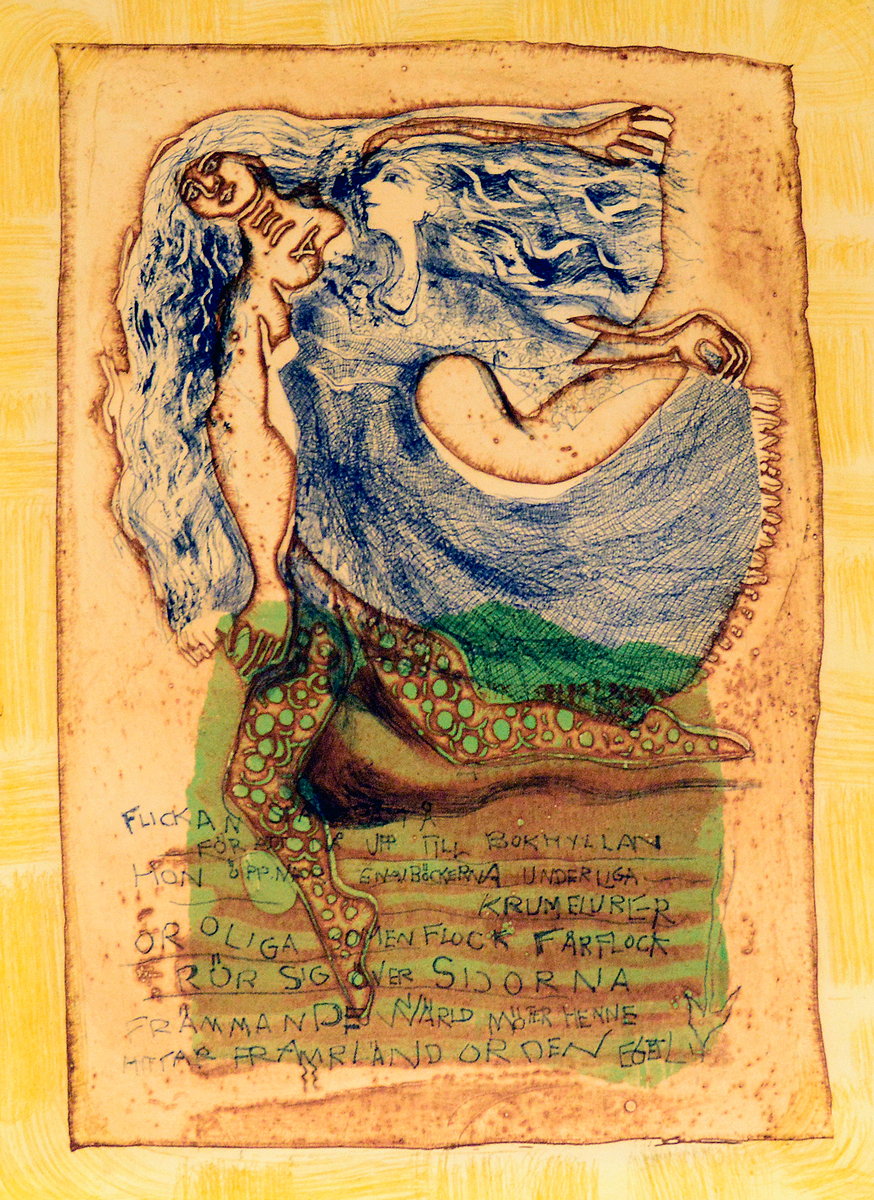 FLICKAN TÅ
FÖR UPP TILL BOKHYLLAN
HON ÖPPNADE EN AV BÖCKERNA UNDERLIGA
KRUMELURER
OROLIGA SOM EN FLOCK FÅRFLOCK
RÖR SIG ÖVER SIDORNA
FRÄMMANDE VÄRLD MÖTER HENNE
HITTAR FRAM ORDEN